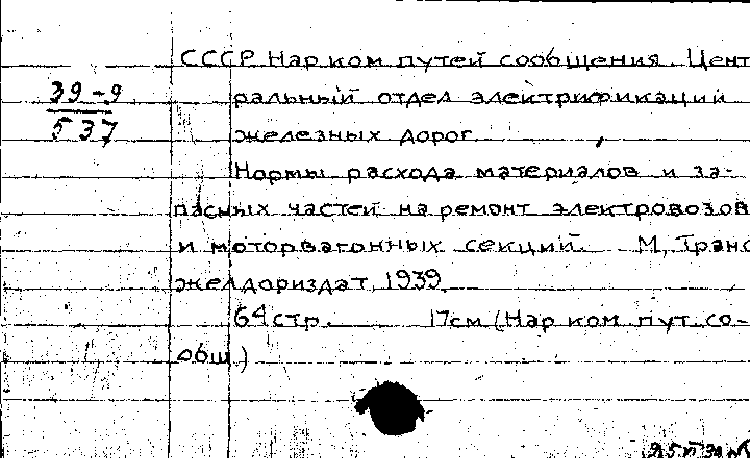 СССР Нар ком путей сообщения. Цент
39-9
537
ральный отдел электрификации
железных дорог.
Нормы расхода материалов и за-
пасных частей на ремонт электровозов
и моторвагонных секций. М, Транс
желдориздат, 1939
64 стр. 17см (Нар ком пут. со-
общ.)